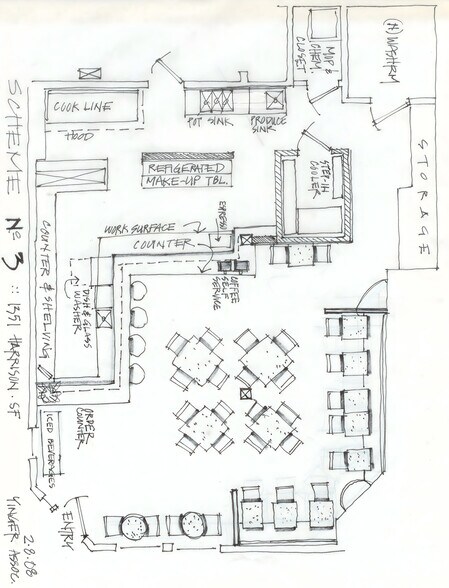 (N) WASHRM
MOP &
CHEM.
CLOSET
STORAGE
COOK LINE
HOOD
POT SINK
PRODUCE
SINK
REFIGERATED
MAKE-UP TBL.
STEP-IN
COOLER
ESPRESSO
WORK SURFACE
COUNTER
COFFEE
SELF
SERVICE
COUNTER & SHELVING
DISH & GLASS
WASHER
ORDER
COUNTER
ICED BEVERAGES
ENTRY
SCHEME No 3 :: 1351 HARRISON . SF
2.8.08
YINGER ASSOC.